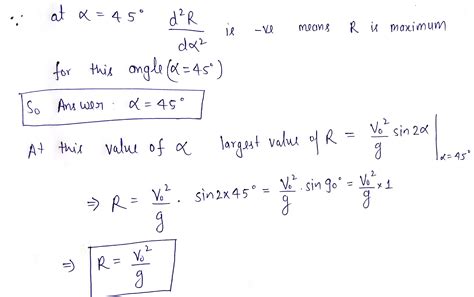 ∵ at α = 45° d²R/dα² is -ve means R is maximum
for this angle (α = 45°)
So Answer. α = 45°
At this value of α largest value of R = V₀²/g sin 2α |α = 45°
⇒ R = V₀²/g . sin 2 x 45° = V₀²/g . sin 90° = V₀²/g x 1
⇒ R = V₀²/g